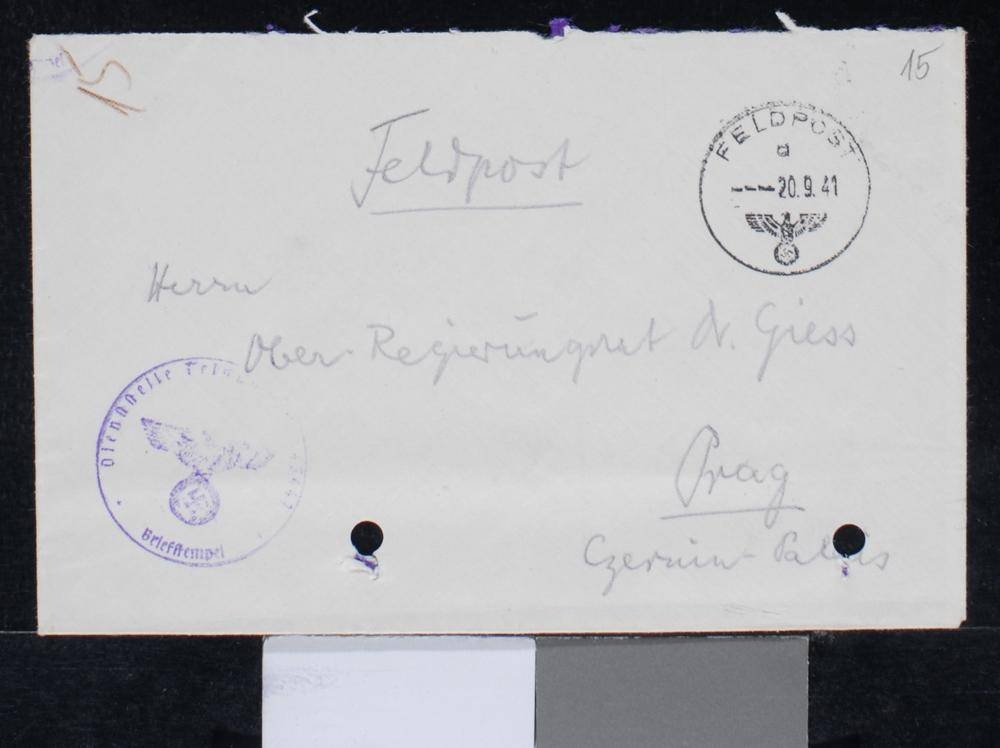 15
15
Feldpost
FELDPOST
a
---20.9.41
Herrn
Ober-Regierungsrat Dr. Giess
Dienststelle
Briefstempel
Prag
Czernin-Palais